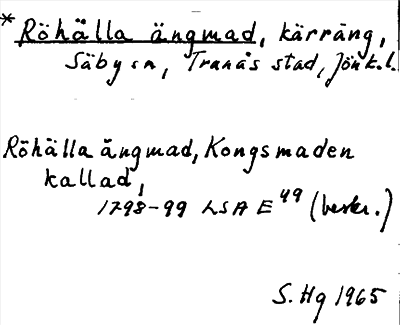 * Röhälla ängmad, kärräng,
Säby sn, Tranås stad, Jönk.l.
Röhälla ängmad, Kongsmaden
kallad,
1798-99 LSA E 49 (beskr.)
S. Hg 1965